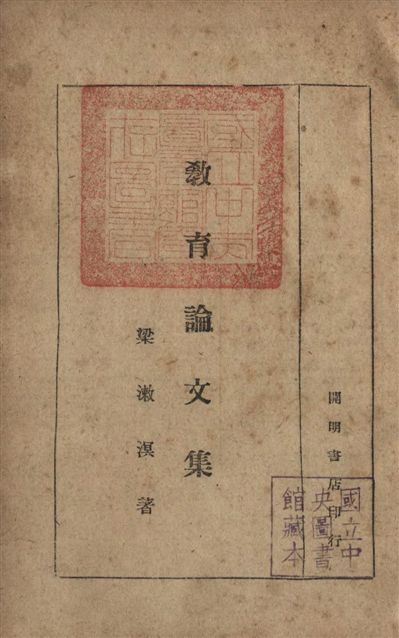 開明書店印行
教育論文集
梁漱溟著
國立中
央圖書
館藏本